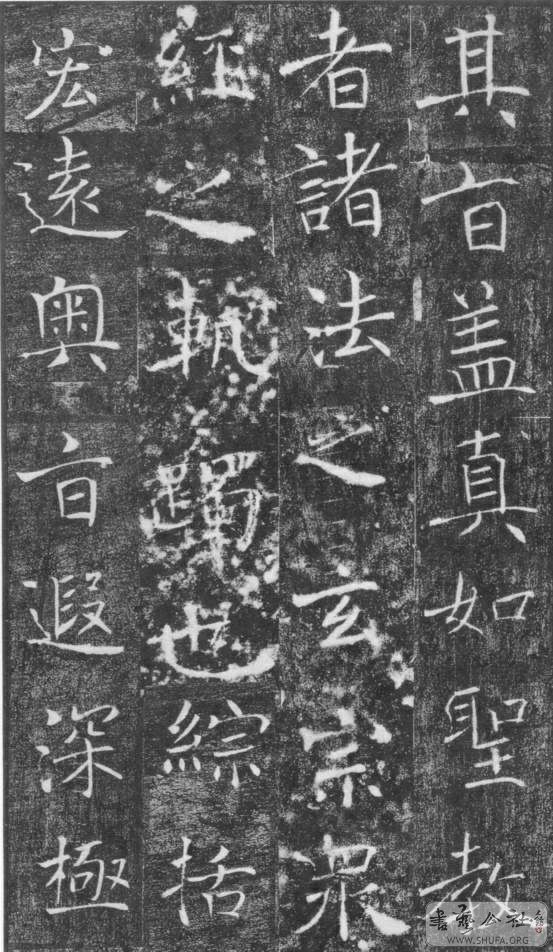 其旨盖真如聖教
者諸法之玄宗衆
經之軌躅也綜括
宏遠奥旨遐深極
書藝公社
WWW.SHUFA.ORG